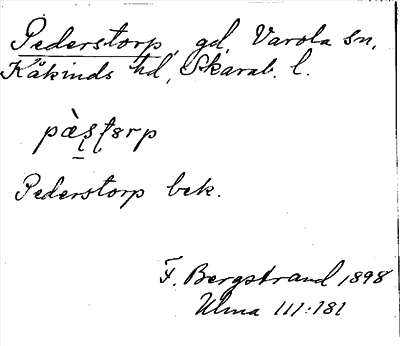 Pederstorp, gd, Varola sn,
Kåkinds hd, Skarab. l.
pàs̱ṭɘrp
Pederstorp bek.
F. Bergstrand 1898
Ulma 111:181